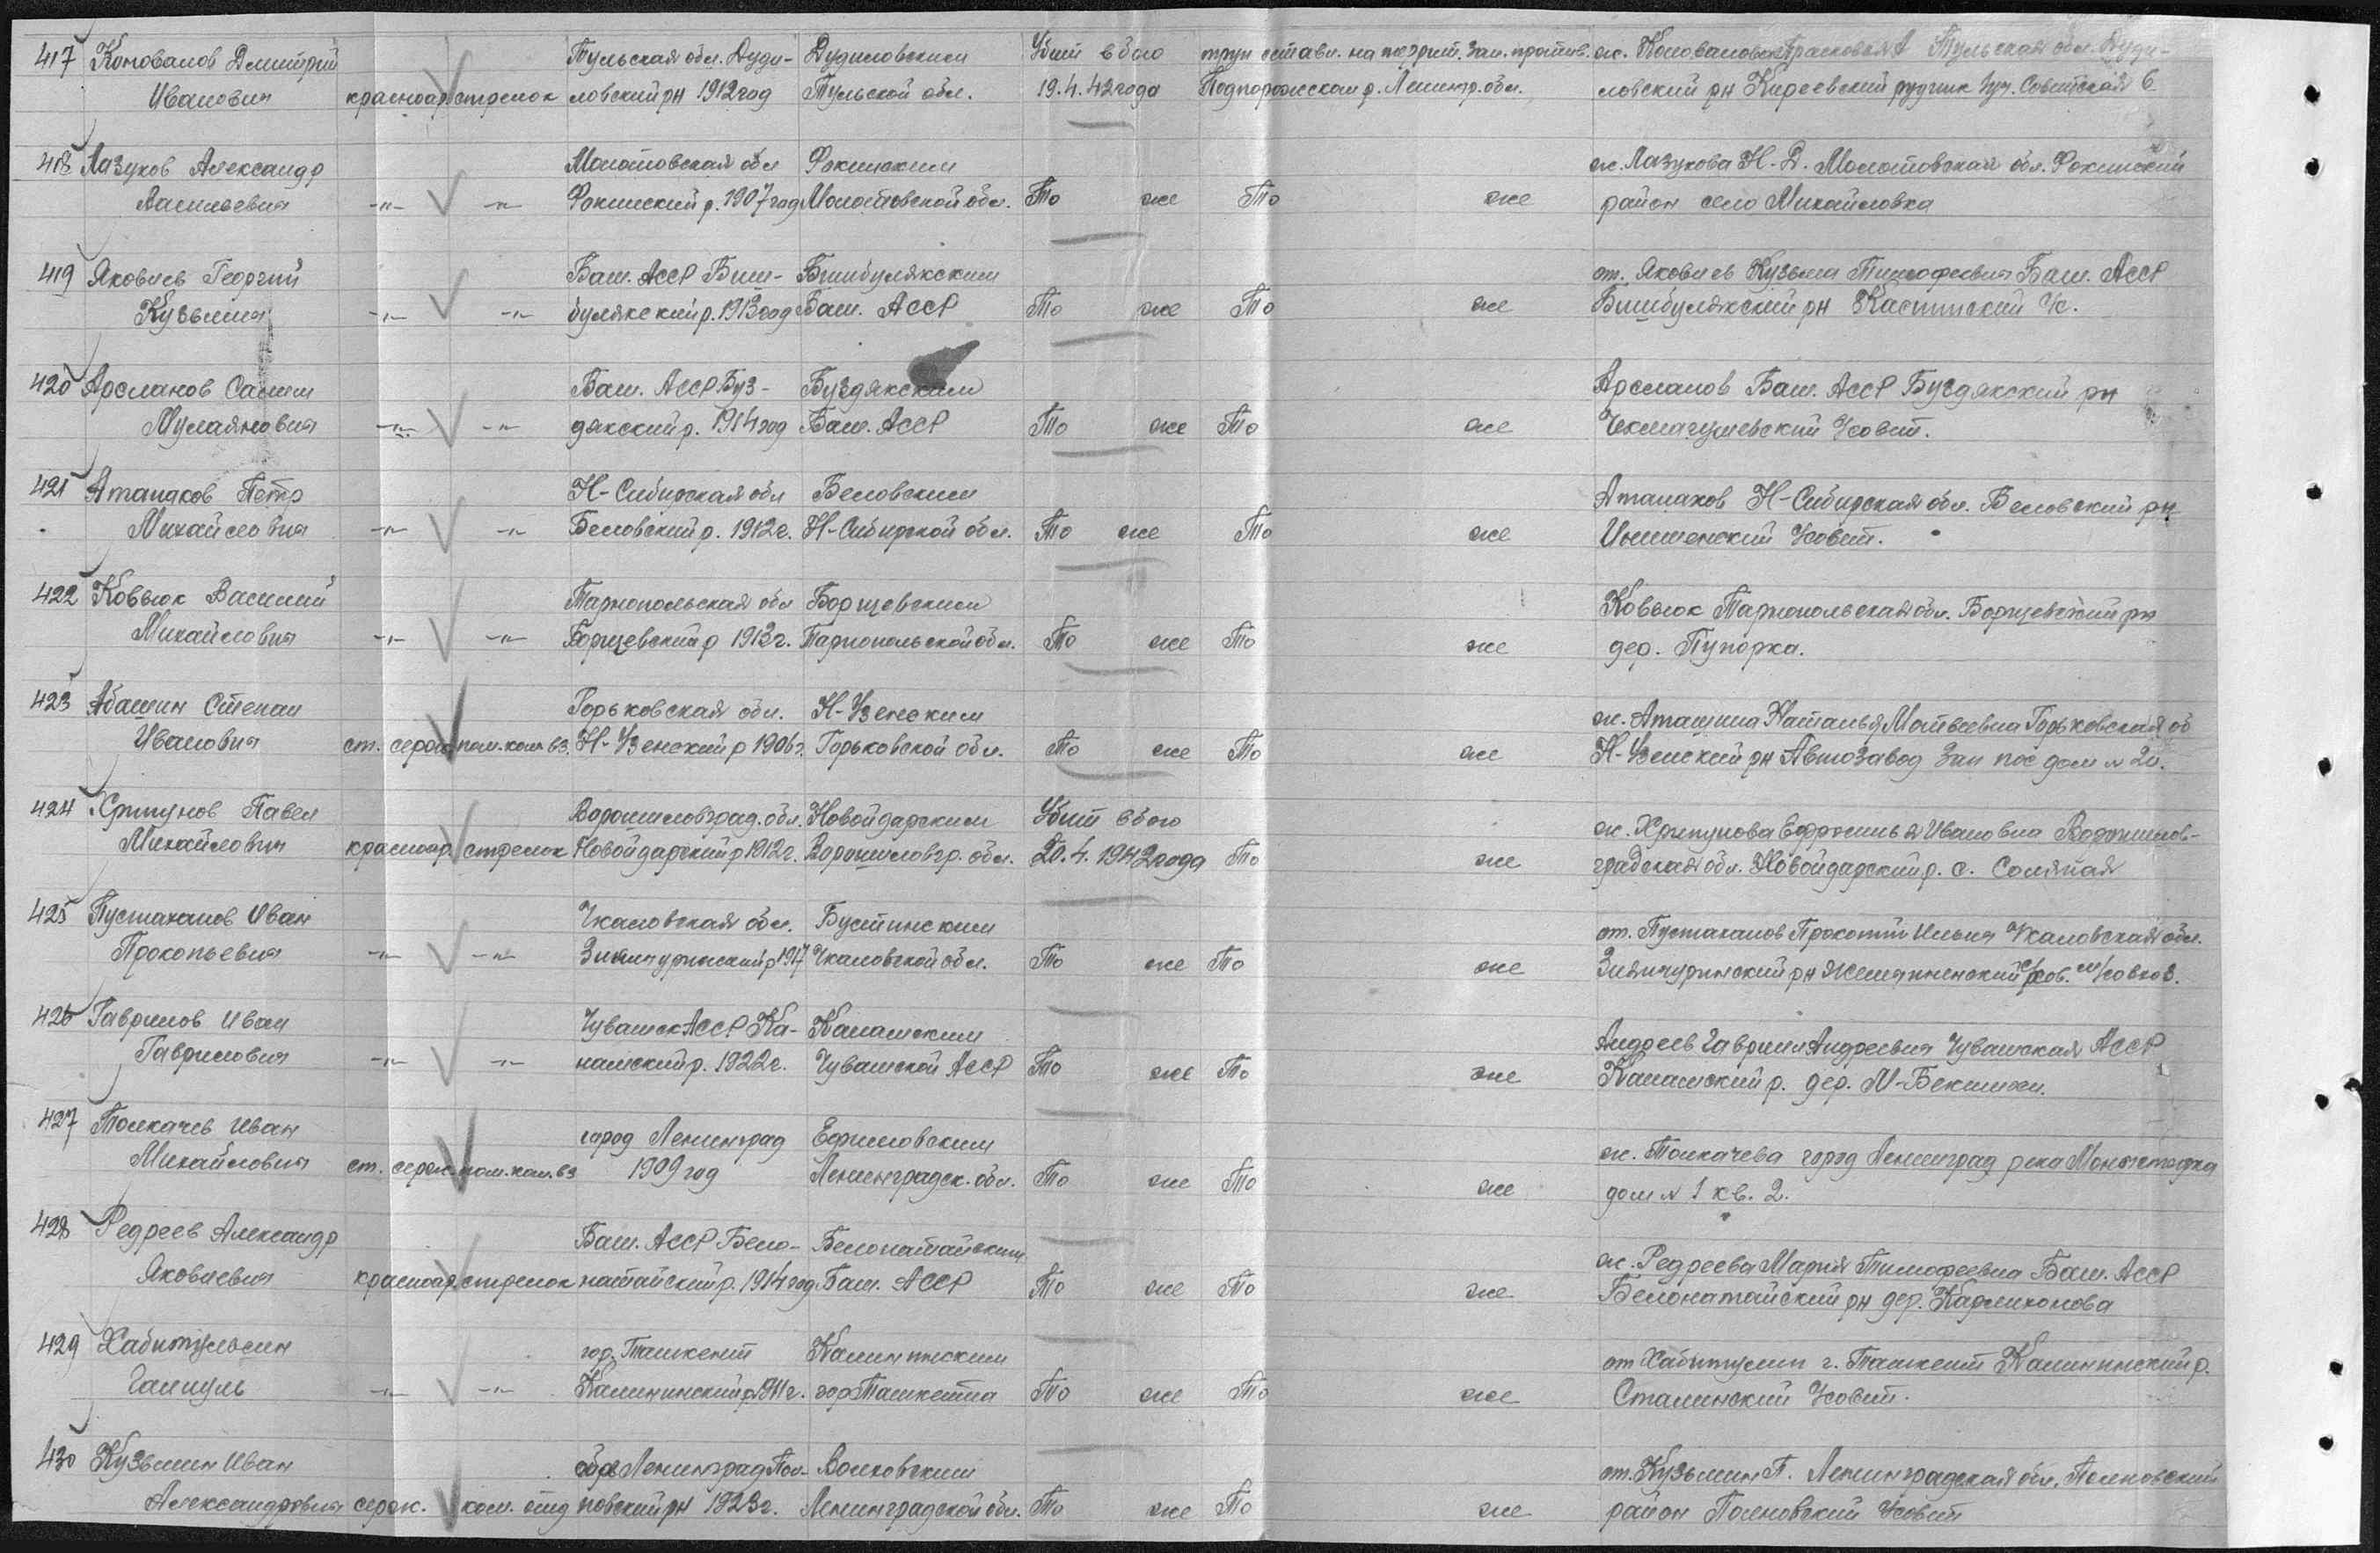 417 Коновалов Дмитрий Тульская обл. Дуди- Дудиловским Убит в бою труп оставл. на террит. зан. против. ж. Коновалова А Тульская обл. Дуди-
Иванович красноар. стрелок ловский рн 1912 год Тульской обл. 19.4.42 года Подпорожскам р. Ленингр. обл. ловский рн Киреевский рудник Советская 6
418 Лазуков Александр Молотовская обл Фокинским ж. Лазукова Н. Д. Молотовская обл. Фокинский
Васильевич -"- -"- Фокинский р. 1907 год Молотовской обл. То же То же район село Михайловка
419 Яковлев Георгий Баш. АССР Биш- Бишбулякским от. Яковлев Кузьма Тимофеевич Баш. АССР
Кузьмич -"- -"- булякский р. 1913 год Баш. АССР То же То же Бишбулякский рн
420 Арсланов Баш. АССР Буз- Буздякским Арсланов Баш. АССР Буздякский рн
Мулаянович -"- -"- дякский р. 1914 год Баш. АССР То же То же Чекмагушевский с/совет.
421 Атанаков Петр Н-Сибирская обл Беловским Атанаков Н-Сибирская обл. Беловский рн
Михайлович -"- -"- Беловский р. 1912 г. Н-Сибирской обл. То же То же с/совет.
422 Ковблюк Василий Тарнопольская обл Борщевским Ковблюк Тарнопольская обл. Борщевский рн
Михайлович -"- -"- Борщевский р 1913 г. Тарнопольской обл. То же То же дер.
423 Абашин Степан Горьковская обл. Н-Узенским ж. Аташина Наталья Матвеевна Горьковская об
Иванович ст. серж. пом. ком. вз. Н-Узенский р 1906 г. Горьковской обл. То же То же Н-Узенский рн Автозавод Зап пос дом №
424 Хрипунов Павел Ворошиловград. обл. Новойдарским Убит в бою ж. Хрипунова Ефросинья Ивановна Ворошилов-
Михайлович красноар. стрелок Новойдарский р 1912 г. Ворошиловгр. обл. 20.4.1942 года То же градская обл. Новойдарский р. с.
425 Пустаханов Иван Чкаловская обл. Бустинским от. Пустаханов Прокопий Ильич Чкаловская обл.
Прокопьевич -"- -"- Зиянчуринский р 1917 Чкаловской обл. То же То же Зиянчуринский рн
426 Гаврилов Иван Чувашск АССР Ка- Канашским Андреев Гаврил Андреевич Чувашская АССР
Гаврилович -"- -"- нашский р. 1922 г. Чувашской АССР То же То же Канашский р. дер. М-Бекшихи.
427 Толкачев Иван город Ленинград Ефимовским ж. Толкачева город Ленинград река
Михайлович ст. серж. пом. ком. вз 1909 год Ленинградск. обл. То же То же дом № 1 кв. 2.
428 Редреев Александр Баш. АССР Бело- Белокатайским ж. Редреева Мария Тимофеевна Баш. АССР
Яковлевич красноар. стрелок катайский р. 1914 год Баш. АССР То же То же Белокатайский рн дер. Карлиханова
429 Хабитульин гор. Ташкент Калининским от Хабитулин г. Ташкент Калининский р.
-"- -"- Калининский р 1911 г. гор Ташкента То же То же Сталинский с/совет.
430 Кузьмин Иван Ленинград Пол- Волховским от. Кузьмин П. Ленинградская обл. Полновский
Александрович серж. ком. отд новский рн 1923 г. Ленинградской обл. То же То же район Полновский с/совет